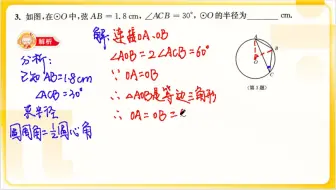 3. 如图,在⊙O中,弦 AB=1.8 cm,∠ACB=30°,⊙O的半径为 cm.
解析
分析:
已知 AB=1.8cm
∠ACB=30°
求半径
圆周角=½圆心角
解:连接OA.OB
∠AOB=2∠ACB=60°
∵ OA=OB
∴ △AOB是等边三角形
∴ OA=OB=
(第3题)